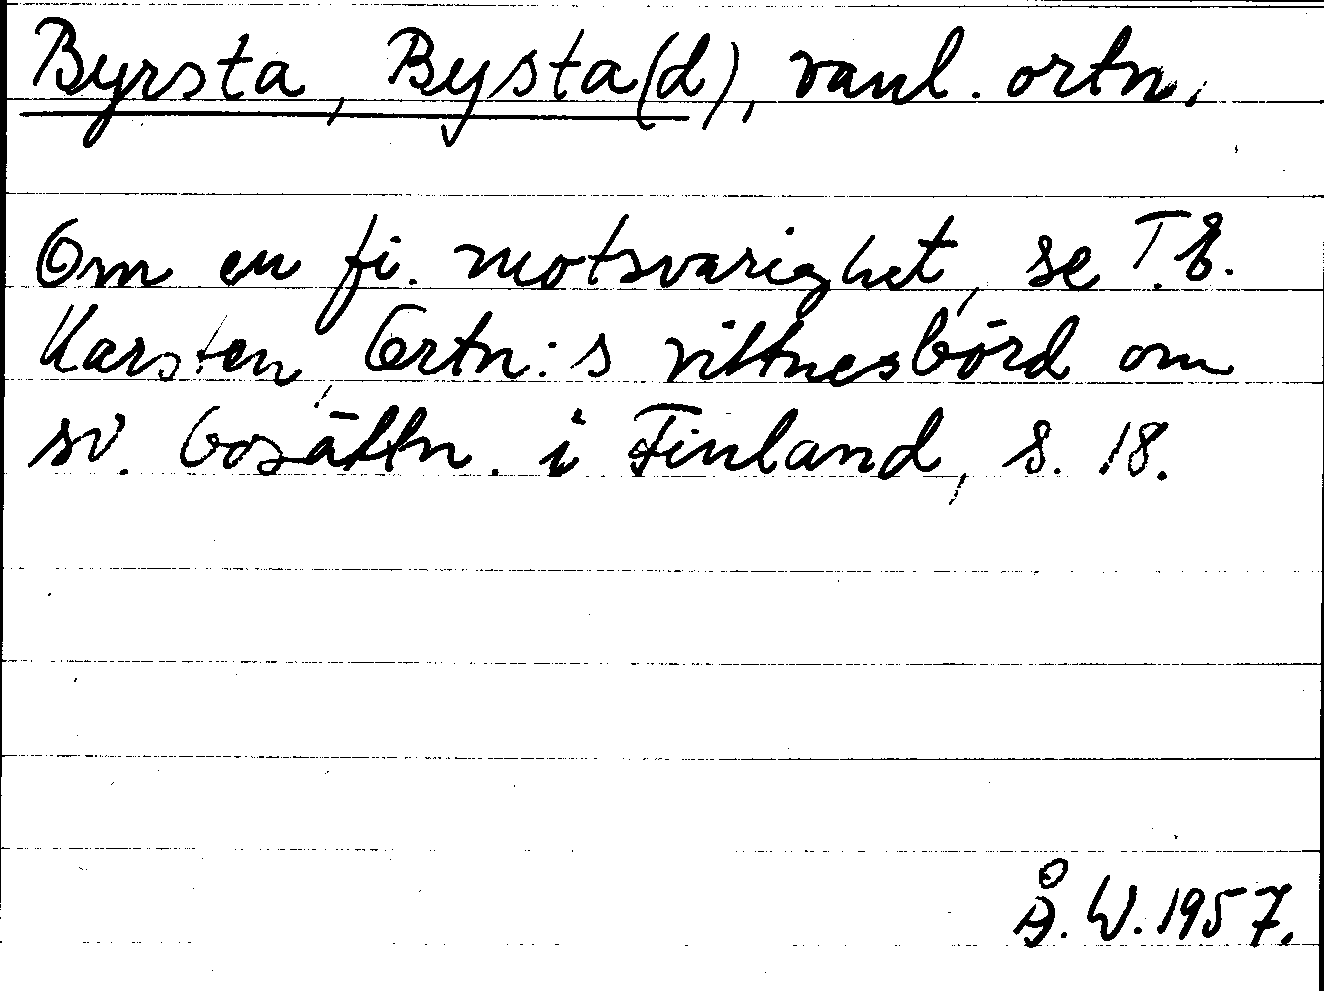 Byrsta, Bysta(d), vanl. ortn.
Om en fi. motsvarighet, se T.E.
Karsten, Ortn:s vittnesbörd om
sv. bosättn. i Finland, s. 18.
Å.W. 1957.